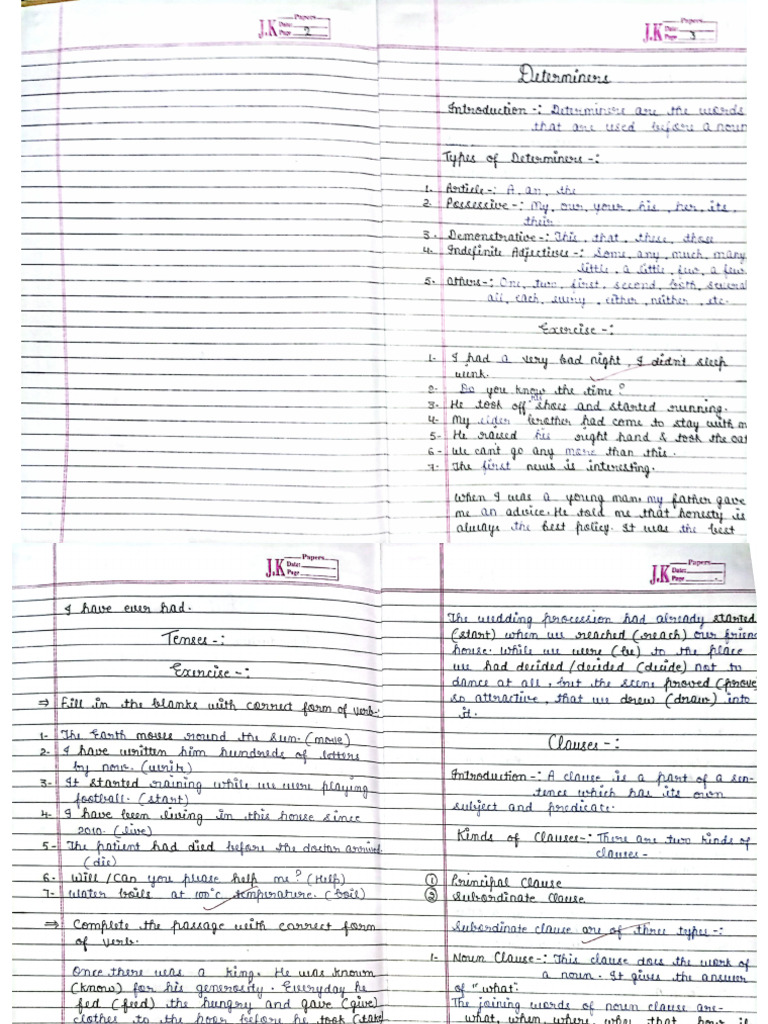 J.K Papers
Date:
Page 2
J.K Papers
Date:
Page 3
Determiners
Introduction -: Determiners are the words
that are used before a noun
Types of Determiners -:
1. Article -: A, an, the
2. Possessive -: My, our, your, his, her, its,
their
3. Demonstrative -: This, that, these, those
4. Indefinite Adjectives -: Some, any, much, many
little, a little, few, a few
5. Others -: One, two, first, second, both, several
all, each, every, either, neither, etc.
Exercise -:
1- I had a very bad night, I didn't sleep
wink.
2- Do you know the time?
3- He took off his shoes and started running.
4- My elder brother had come to stay with m
5- He raised his right hand & took the oat
6- We can't go any more than this.
7- The first news is interesting.
When I was a young man, my father gave
me an advice. He told me that honesty is
always the best policy. It was the best
J.K Papers
Date:
Page
I have ever had.
Tenses -:
Exercise -:
⇒ Fill in the blanks with correct form of verb.
1- The Earth moves round the sun. (move)
2- I have written him hundreds of letters
by now. (write)
3- It started raining while we were playing
football. (start)
4- I have been living in this house since
2010. (live)
5- The patient had died before the doctor arrived
(die)
6- Will/Can you please help me? (Help)
7- Water boils at 100°C temperature. (boil)
⇒ Complete the passage with correct form
of verb.
Once there was a king. He was known
(know) for his generosity. Everyday he
fed (feed) the hungry and gave (give)
clothes to the poor before he took (take
J.K Papers
Date:
Page
The wedding procession had already started
(start) when we reached (reach) our friend
house. While we were (be) to the place
we had decided/decided (decide) not to
dance at all, but the scene proved (prove
so attractive, that we drew (draw) into
it.
Clauses -:
Introduction -: A clause is a part of a sen-
tence which has its own
subject and predicate.
Kinds of Clauses -: There are two kinds of
clauses -
① Principal Clause
② Subordinate Clause
Subordinate clause are of three types -:
1- Noun Clause -: This clause does the work of
a noun. It gives the answer
of "what".
The joining words of noun clause are-
what, when, where, why, that, how, if